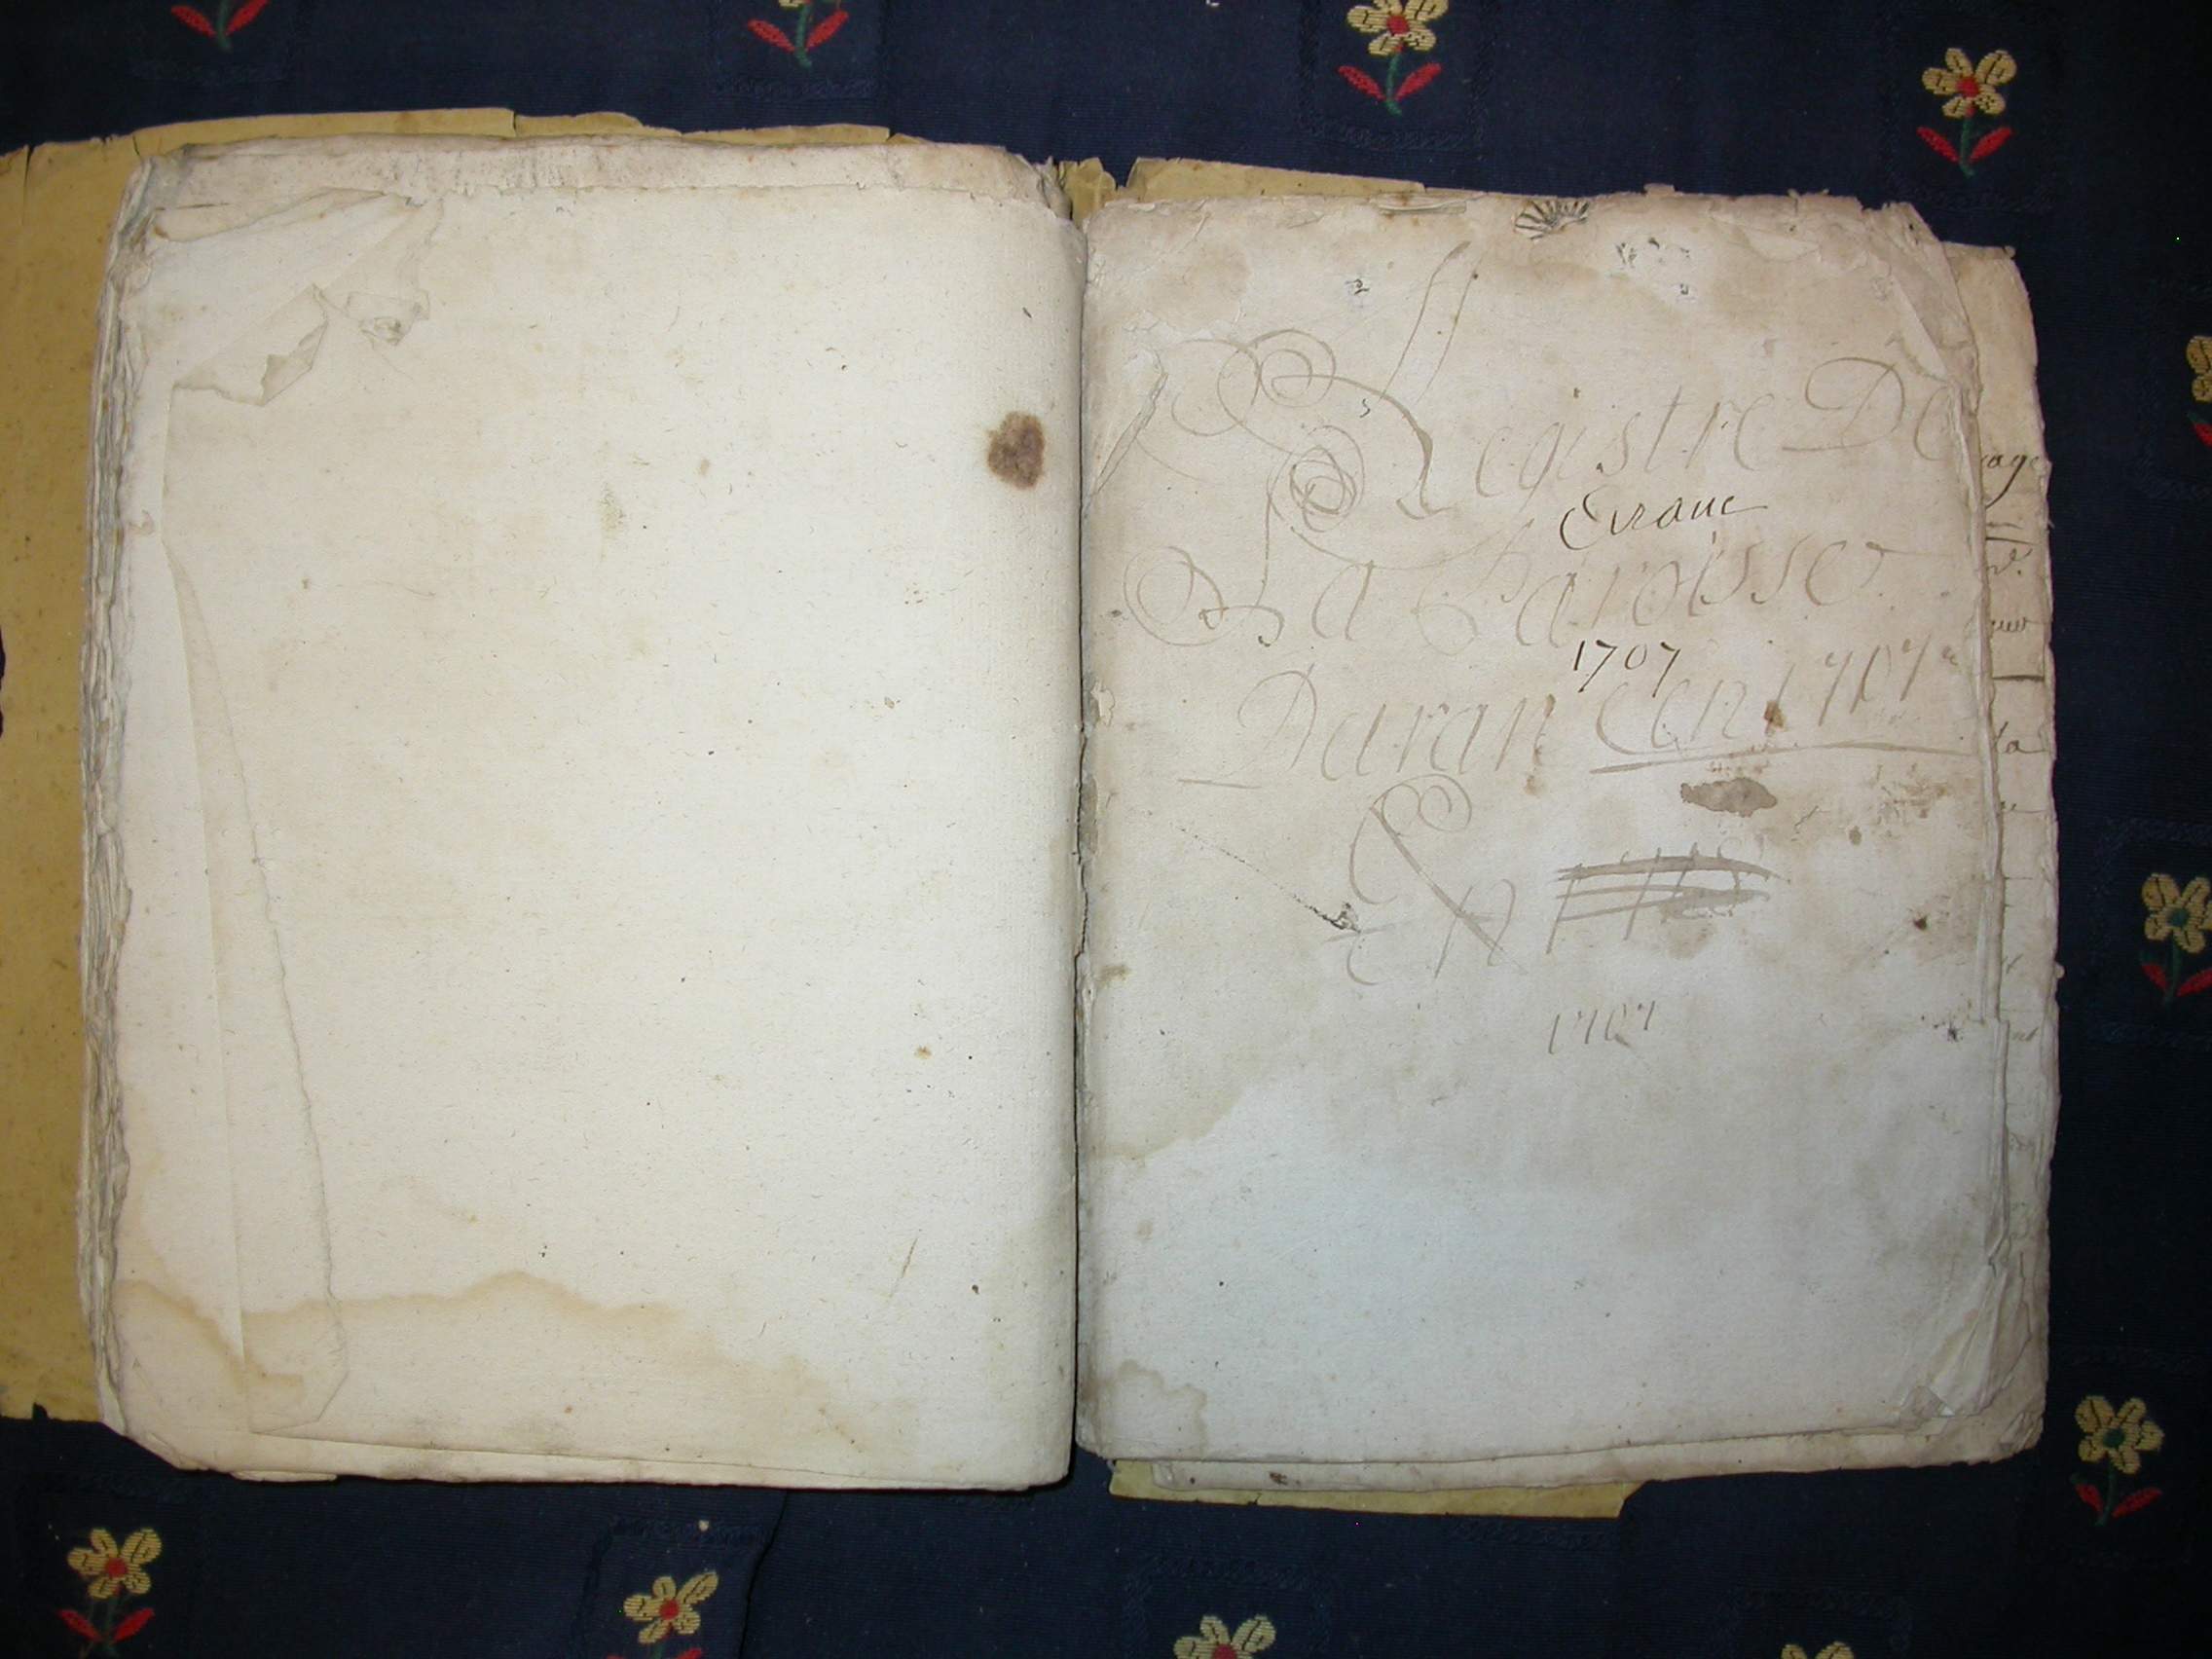 Registre De
Evranc
La Paroisse
1707
Daran Cen 1707
En
1707